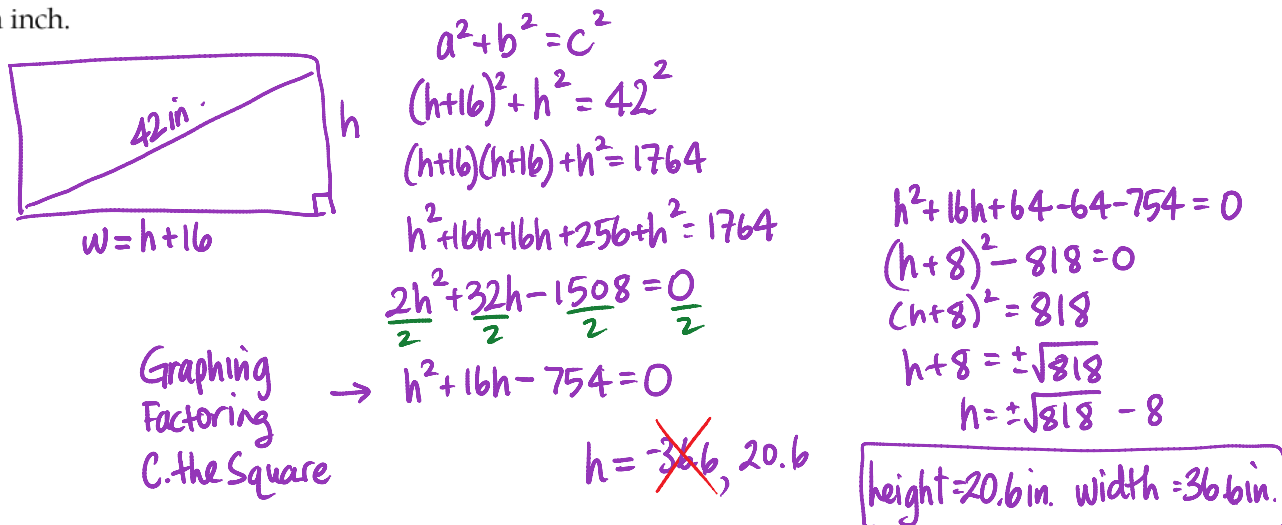 inch.
42in.
h
w=h+16
a²+b²=c²
(h+16)²+h²=42²
(h+16)(h+16)+h²=1764
h²+16h+16h+256+h²=1764
2h²+32h-1508=0
2 2 2 2
Graphing
Factoring
C.the Square
→ h²+16h-754=0
h= -36.6, 20.6
h²+16h+64-64-754=0
(h+8)²-818=0
(h+8)²=818
h+8=±√818
h=±√818 -8
height=20.6in. width=36.6in.